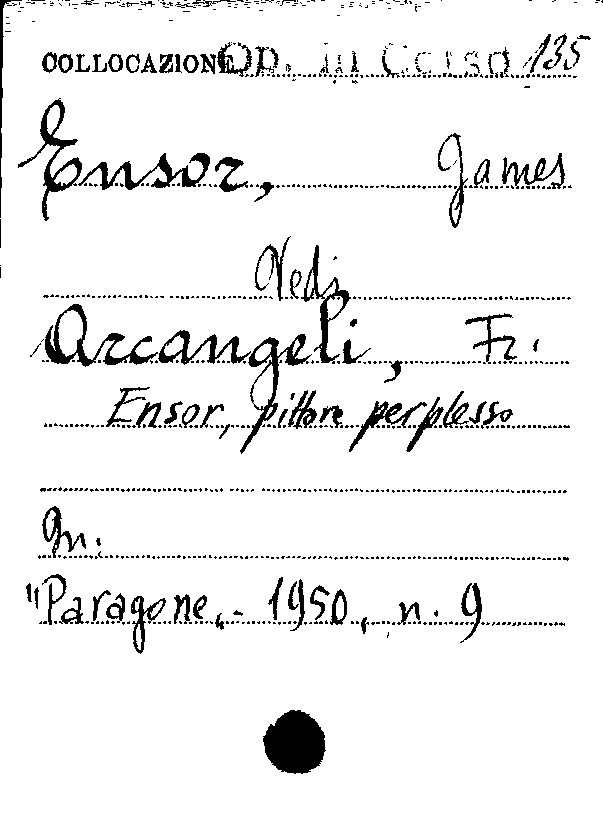 COLLOCAZIONE Op. in Corso 135
Ensor, James
Vedi
Arcangeli, Fr.
Ensor, pittore perplesso
In:
"Paragone„ - 1950, n. 9